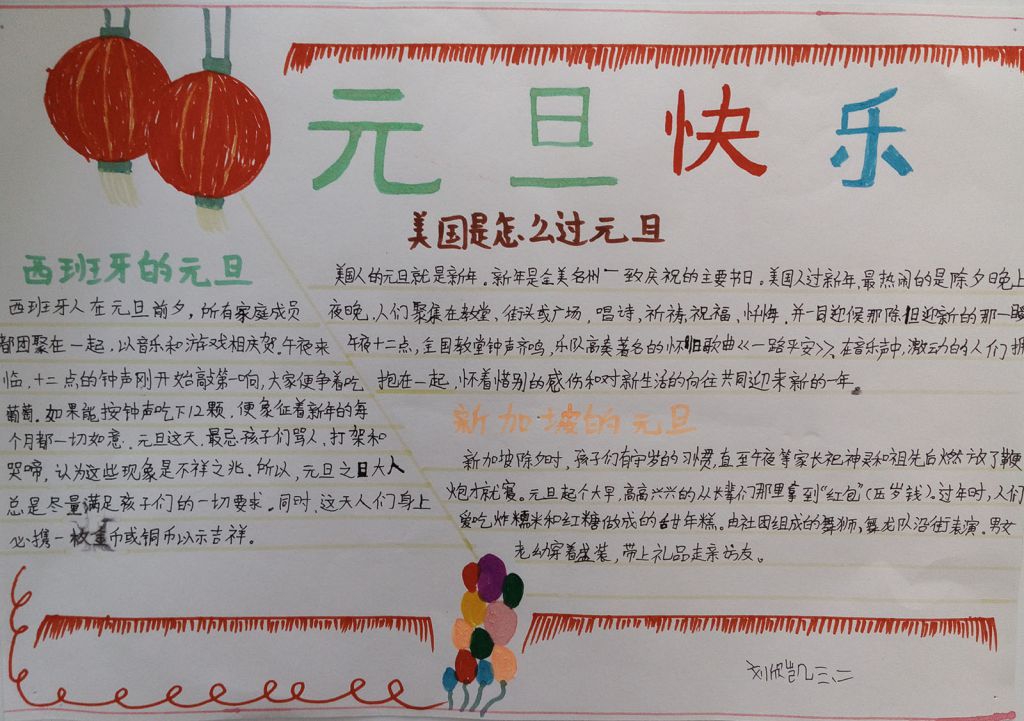 元旦快乐
美国是怎么过元旦
美国人的元旦就是新年。新年是全美各州一致庆祝的主要节日。美国人过新年,最热闹的是除夕日晚上
夜晚,人们聚集在教堂、街头或广场,唱诗,祈祷,祝福,忏悔,并一同迎候那除旧迎新的那一瞬
午夜十二点,全国教堂钟声齐鸣,乐队高奏著名的怀旧歌曲《一路平安》。在音乐声中,激动的人们拥
抱在一起,怀着惜别的感伤和对新生活的向往共同迎来新的一年。
西班牙的元旦
西班牙人在元旦前夕,所有家庭成员
都团聚在一起,以音乐和游戏相庆贺。午夜来
临,十二点的钟声刚开始敲第一响,大家便争着吃
葡萄。如果能按钟声吃下12颗,便象征着新年的每
个月都一切如意。元旦这天,最忌孩子们骂人,打架和
哭啼,认为这些现象是不祥之兆。所以,元旦之日大人
总是尽量满足孩子们的一切要求。同时,这天人们身上
必携一枚金币或铜币以示吉祥。
新加坡的元旦
新加坡除夕时,孩子们有守岁的习惯,直至午夜等家长祀神灵和祖先后燃放了鞭
炮才就寝。元旦起个大早,高高兴兴的从长辈们那里拿到"红包"(压岁钱)。过年时,人们
爱吃炸糯米和红糖做成的甜年糕。由社团组成的舞狮,舞龙队沿街表演。男女
老幼穿着盛装,带上礼品走亲访友。
刘欣凯 三、二